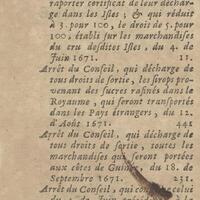 raporter certificat de leur déchar-
ge dans les Isles ; & qui réduit
à 3. pour 100. le droit de 5. pour
100. établi sur les marchandises
du cru desdites Isles, du 4. de
Juin 1671.
Arrêt du Conseil, qui décharge de
tous droits de sortie, les sirops pro-
venant des sucres rafinés dans le
Royaume, qui seront transportés
dans les Pays étrangers, du 12.
d'Août 1671. 441
Arrêt du Conseil, qui décharge de
tous droits de sortie, toutes les
marchandises qui seront portées
aux côtes de Guinée, du 18. de
Septembre 1671.
Arrêt du Conseil, qui